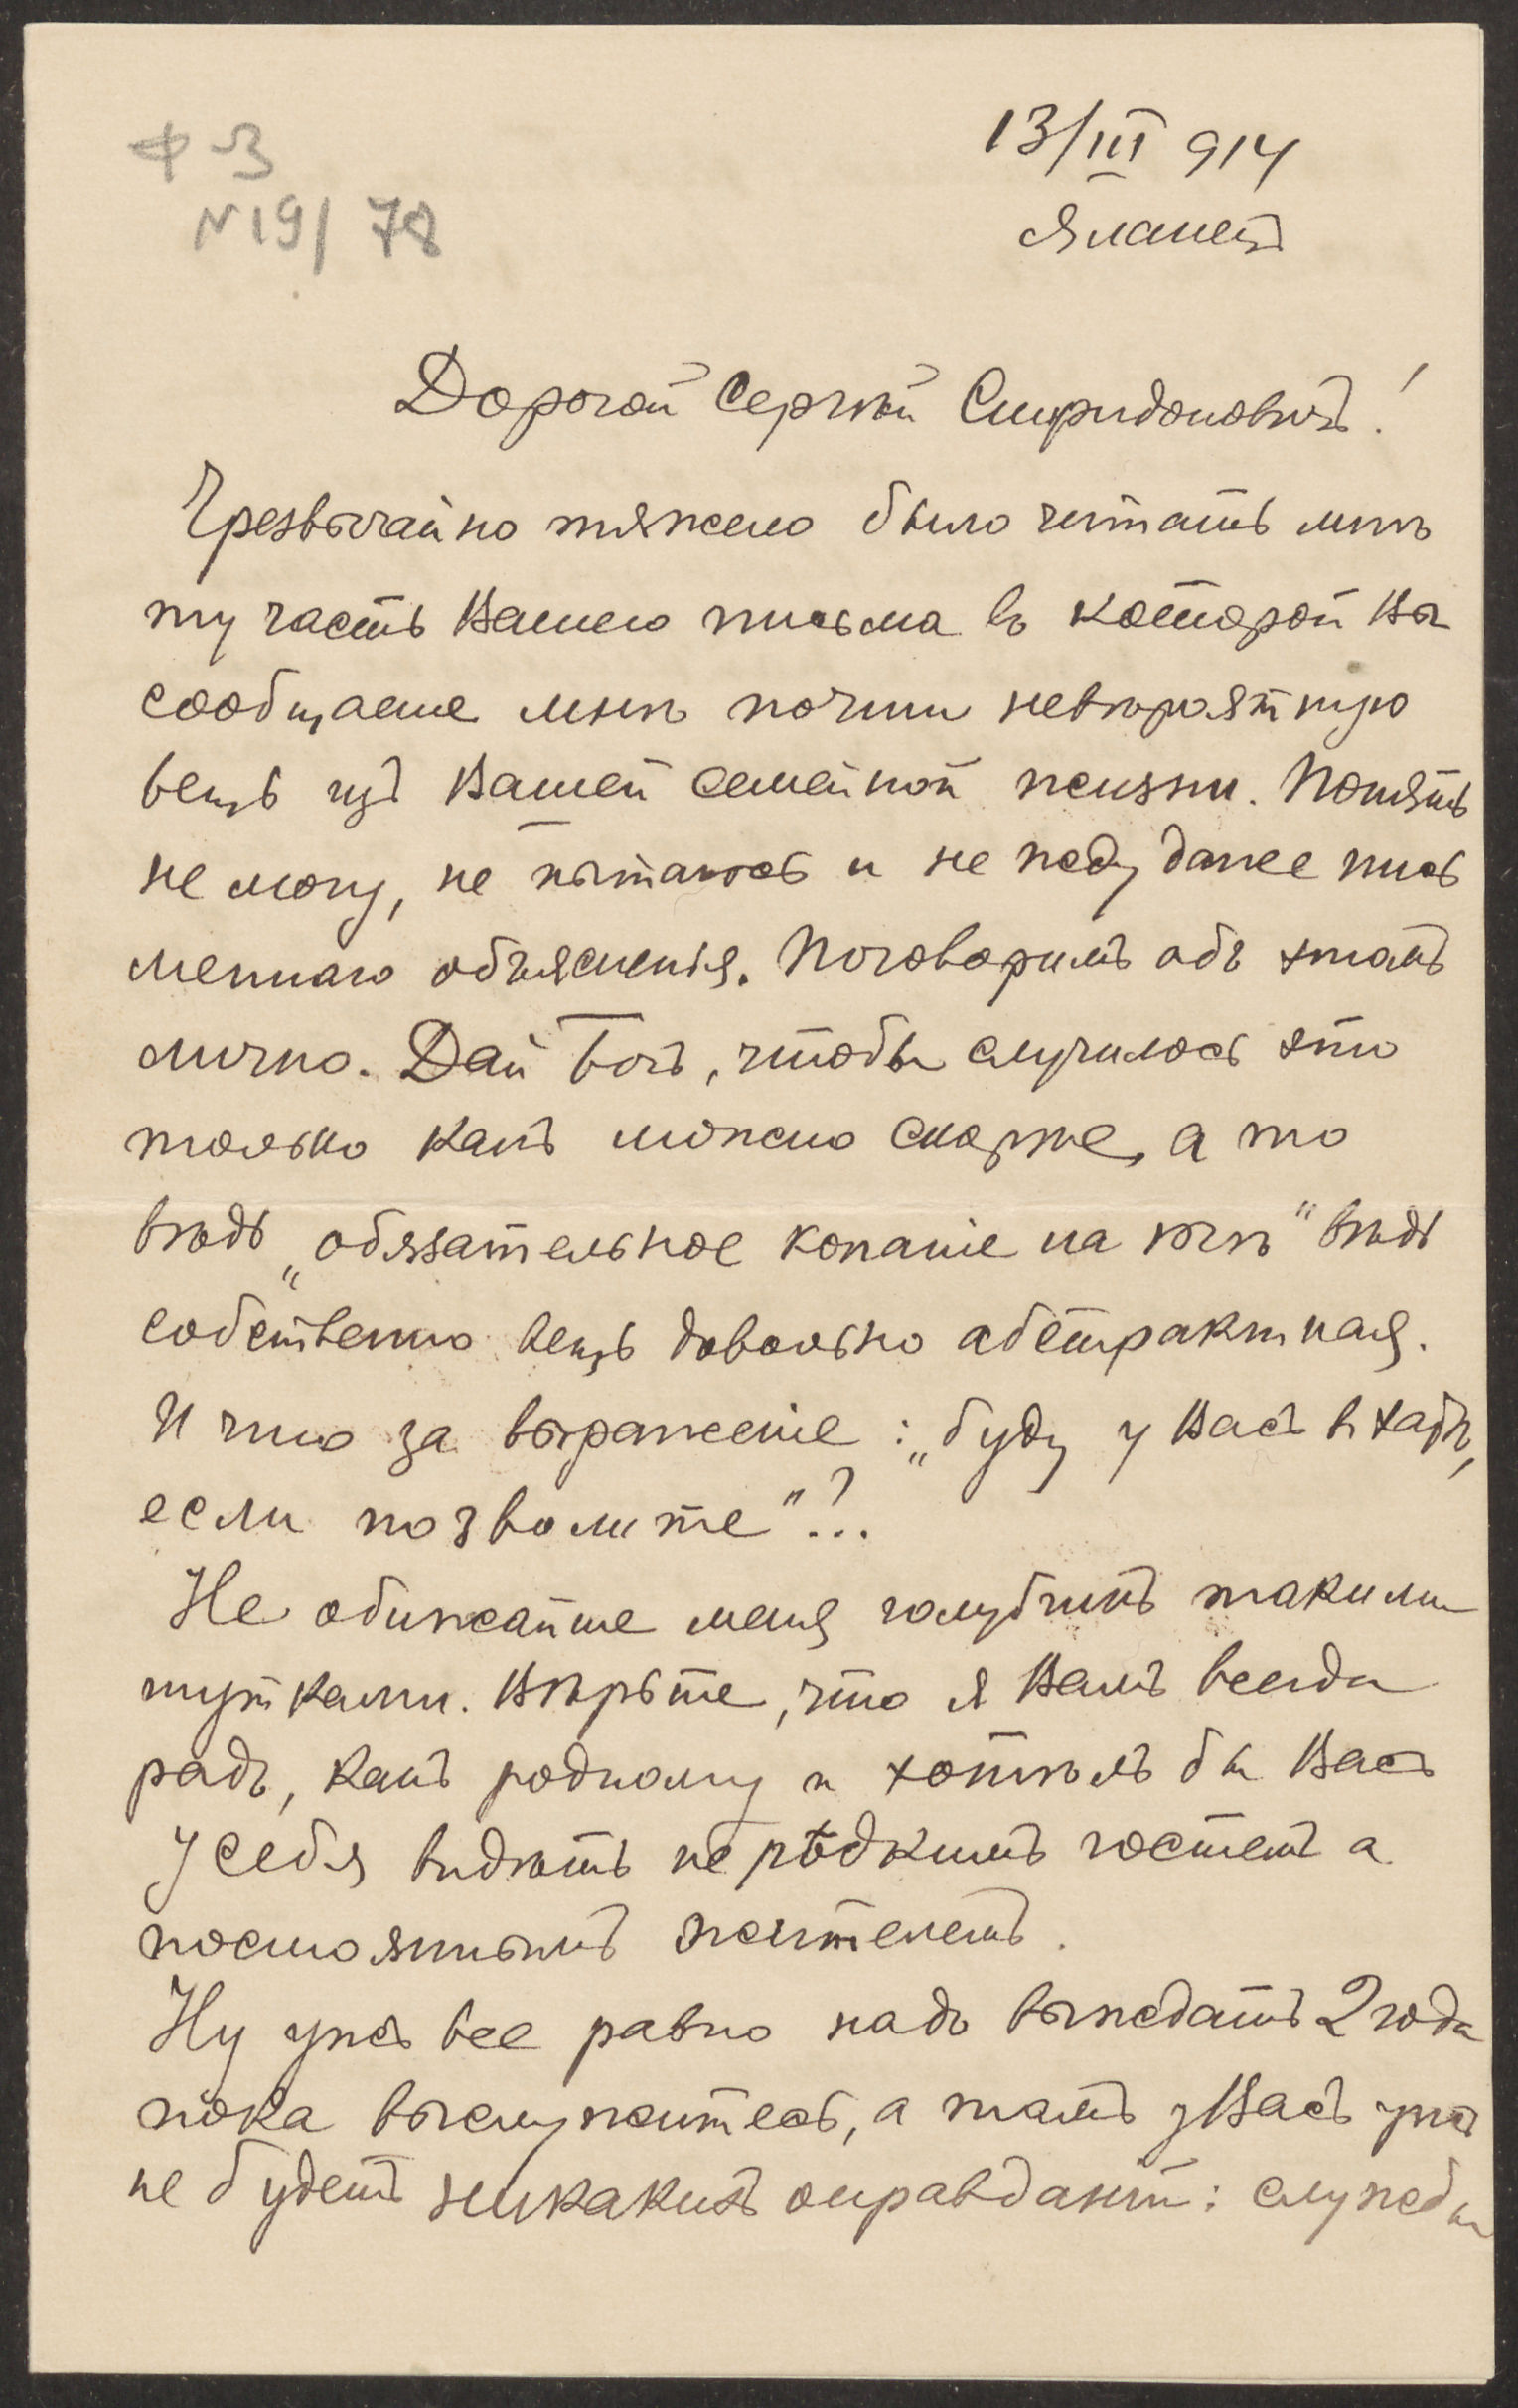 Ф 3
N 19/78
13/III 914
Яланецъ
Дорогой Сергѣй Спиридоновичъ!
Чрезвычайно тяжело было читать мнѣ
ту часть Вашего письма въ которой Вы
сообщаете мнѣ почти невѣроятную
вещь изъ Вашей семейной жизни. Понять
не могу, не пытаюсь и не жду даже пись
меннаго объясненія. Поговоримъ объ этомъ
лично. Дай Богъ, чтобы случилось это
только какъ можно скорѣе, а то
вѣдь „обязательное копаніе на югѣ" вѣдь
собственно вещь довольно абстрактная.
И что за выраженіе: „буду у Васъ въ хатѣ,
если позволите"?..
Не обижайте меня голубчикъ такими
шутками. Вѣрьте, что я Вамъ всегда
радъ, какъ родному и хотѣлъ бы Васъ
у себя видѣть не рѣдкимъ гостемъ а
постояннымъ жителемъ.
Ну ужъ все равно надо выждать 2 года
пока выслужитесь, а тамъ у Васъ ужъ
не будетъ никакихъ оправданій: службы